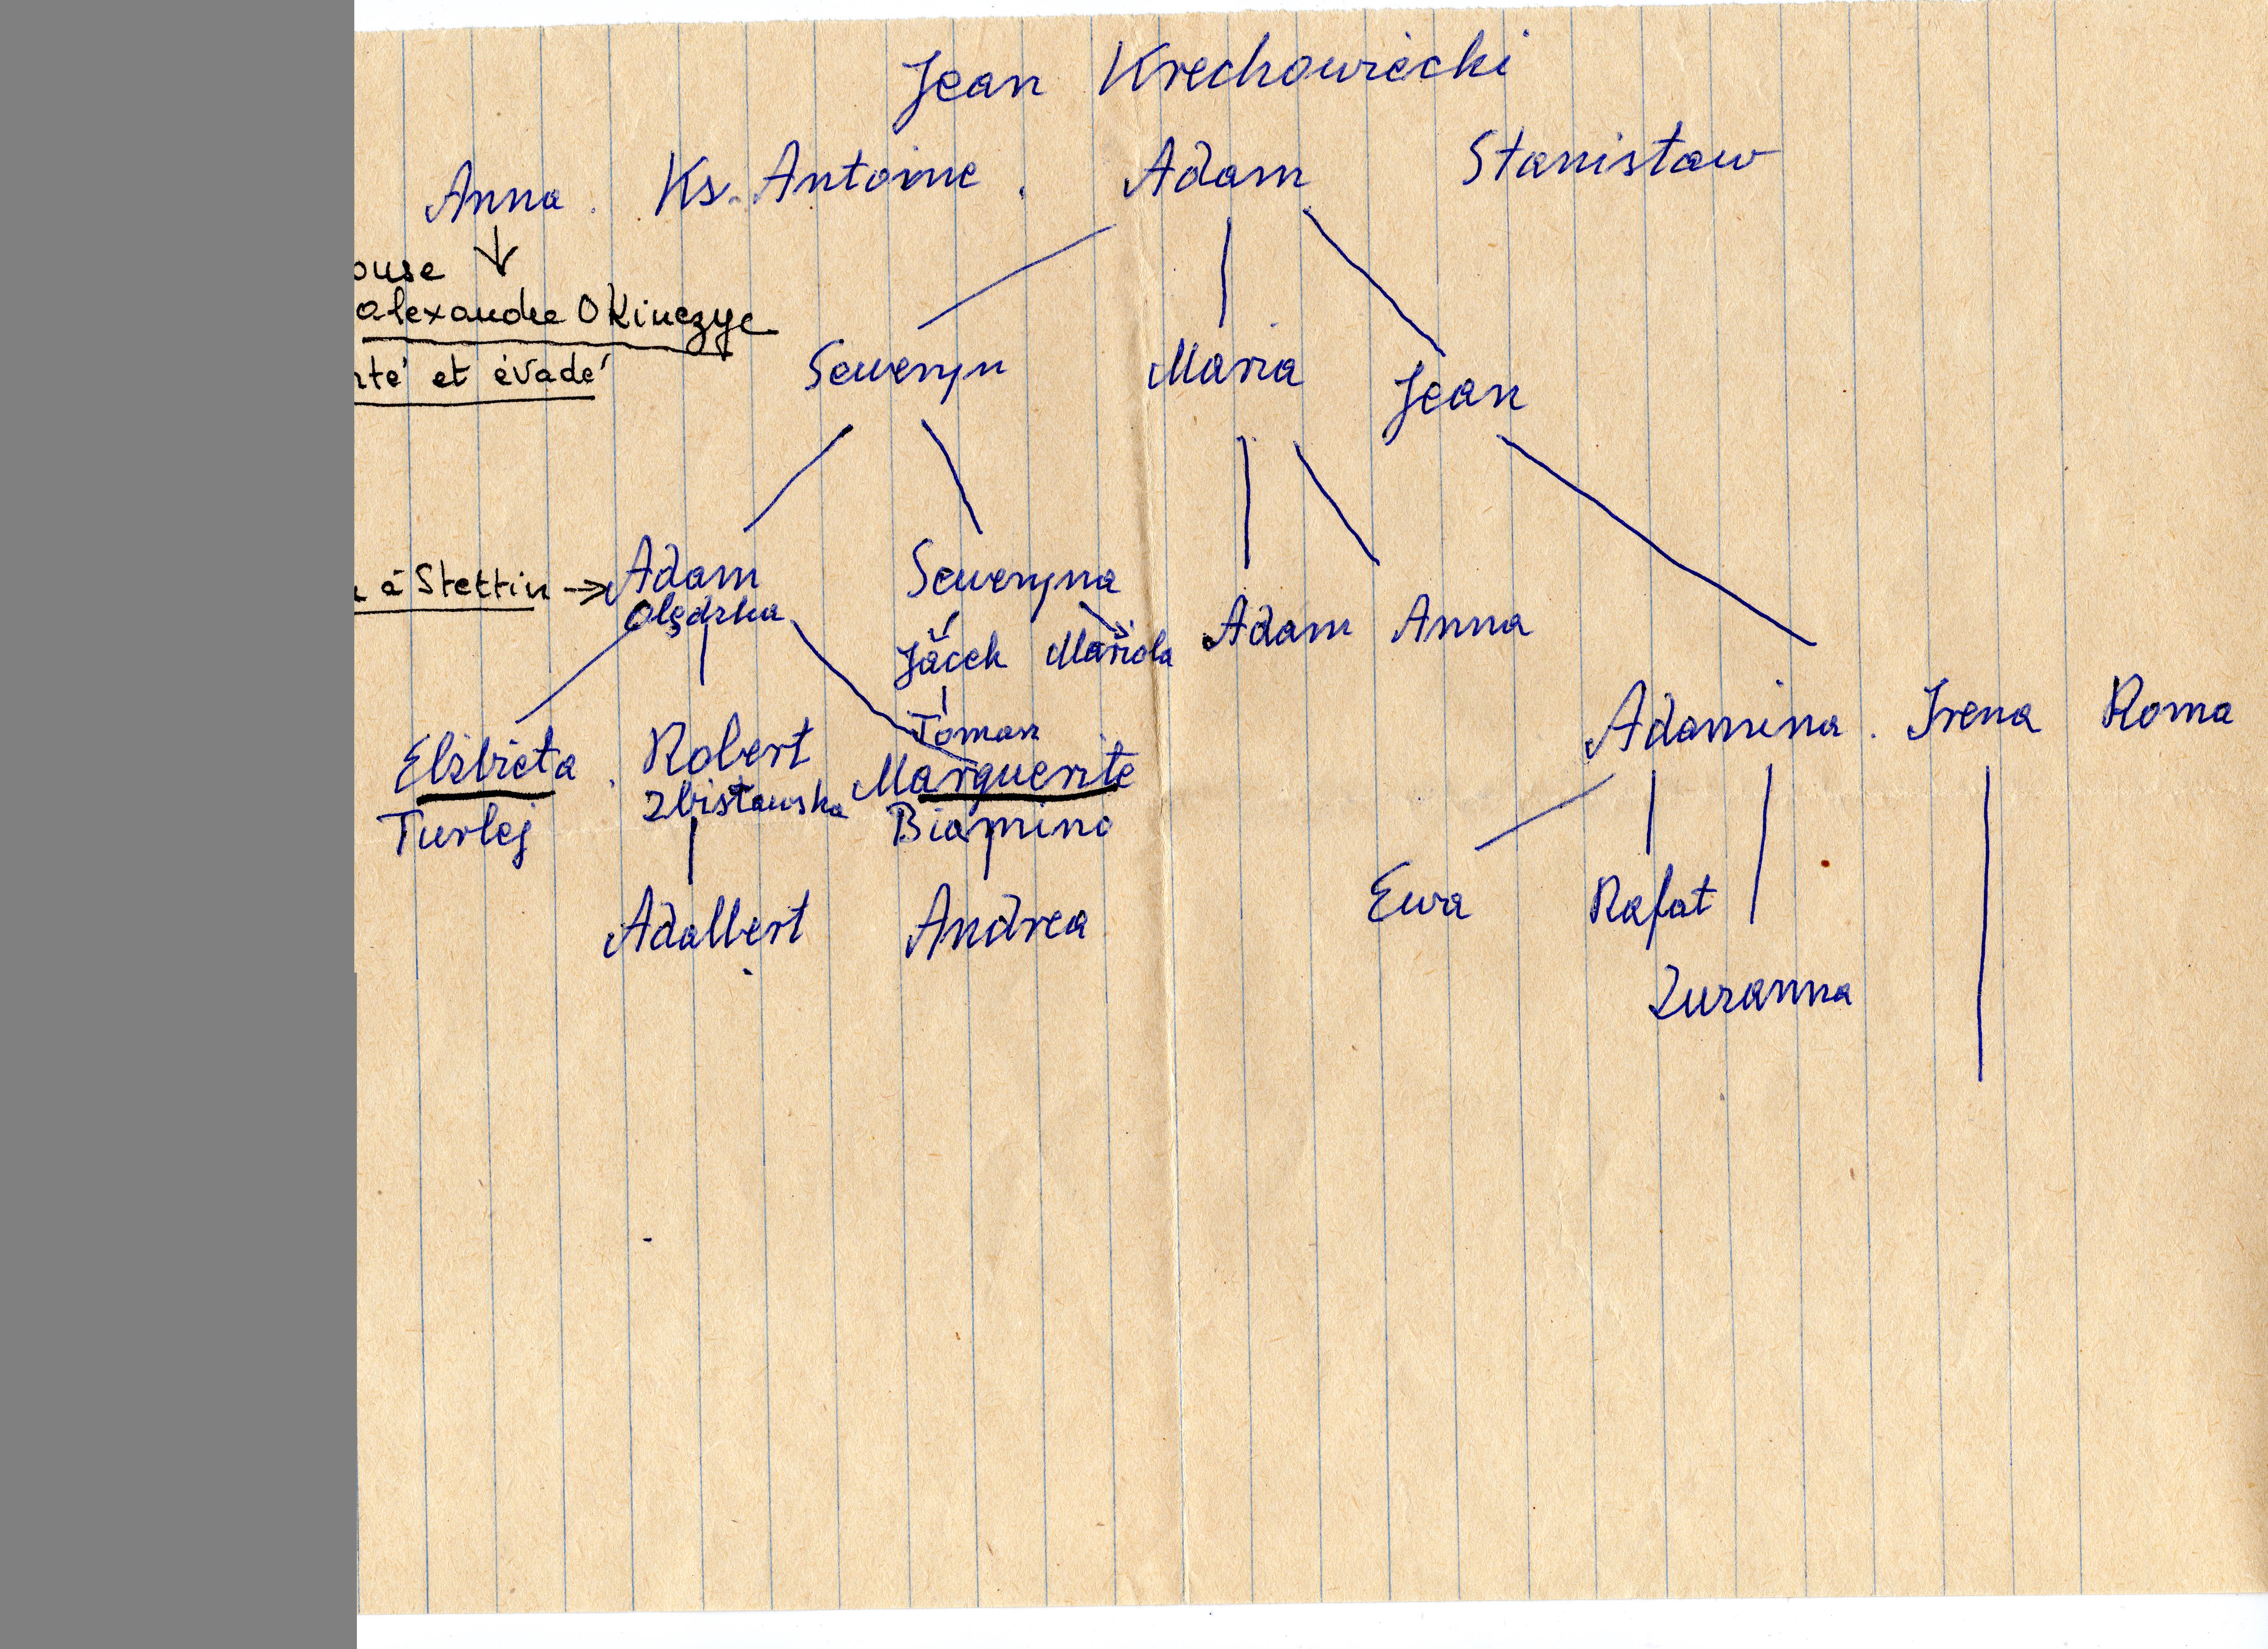 Jean Krechowiecki
Anna. Ks. Antoine. Adam Stanisław
ouse
alexandre OKinczyc
té et évadé
Seweryn Maria Jean
à Stettin → Adam Seweryna
Olędzka
Jacek Mariola Adam Anna
Toman
Elżbieta. Robert Marguerite Adamina. Irena Roma
Turlej Zbisławska Biamino
Adalbert Andrea Ewa Rafał
Zuzanna